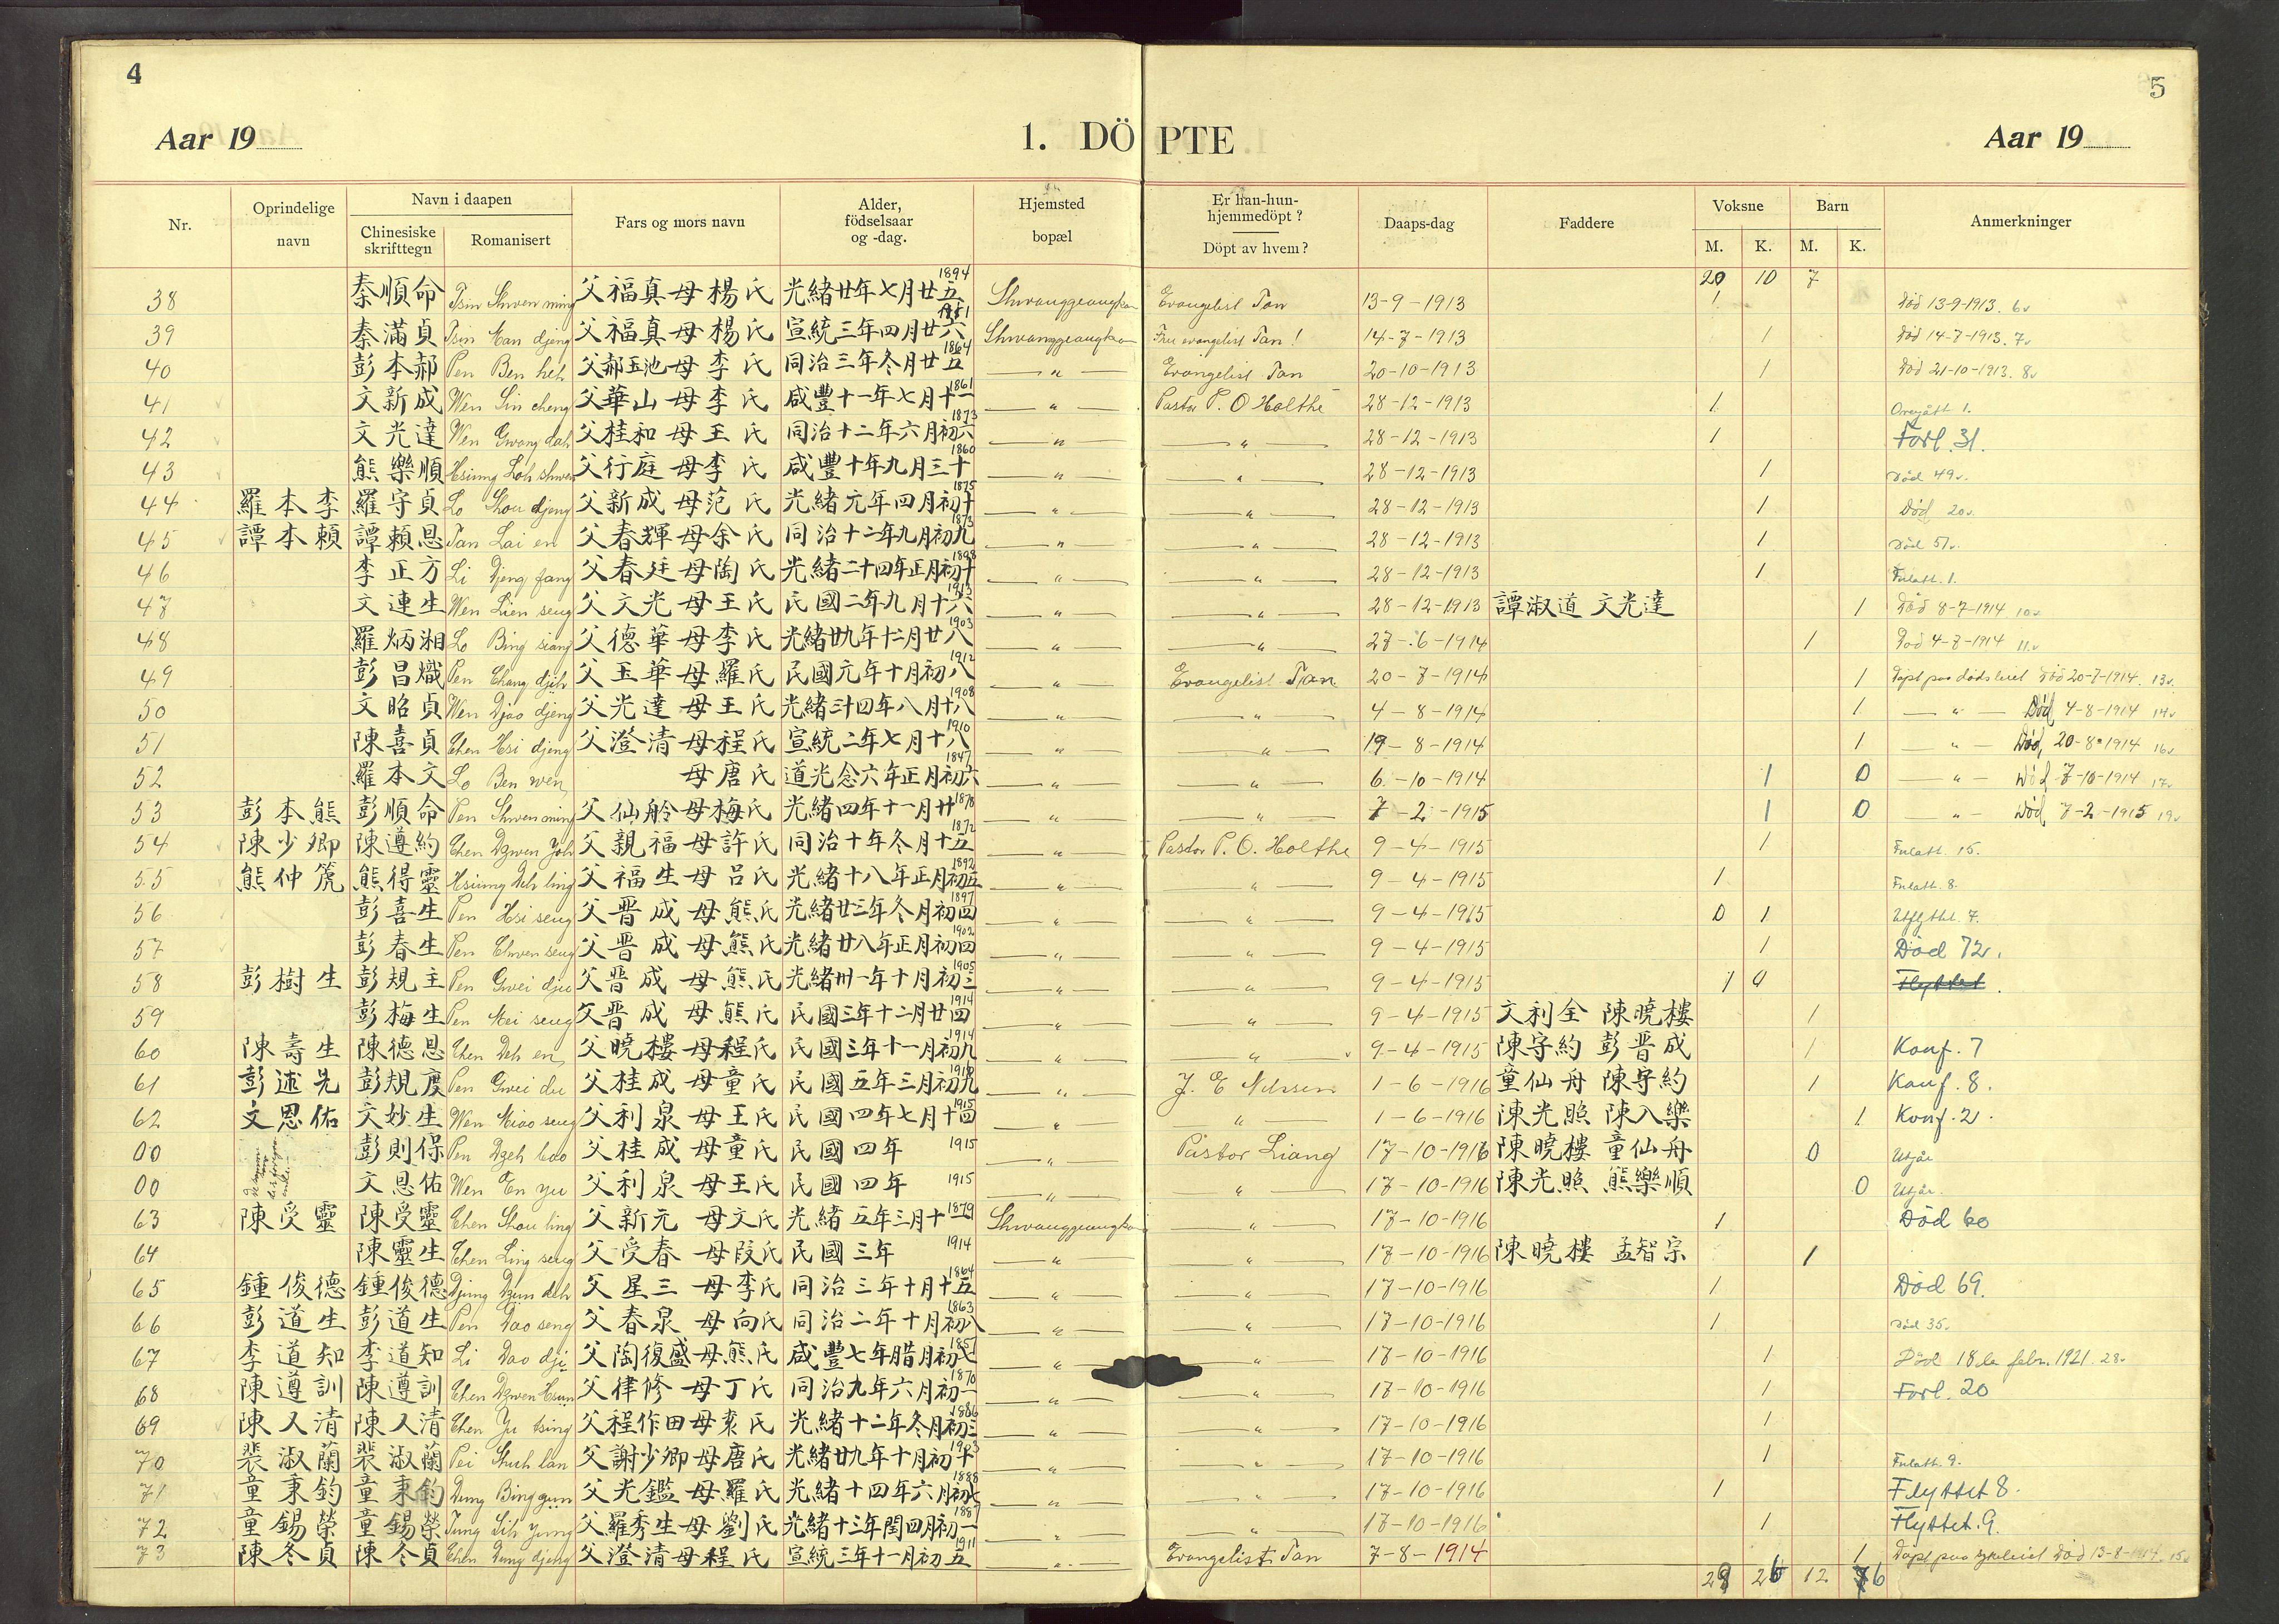 4
5
Aar 19
1. DÖPTE
Aar 19
Nr. Oprindelige navn Navn i daapen Chinesiske skrifttegn Romanisert Fars og mors navn Alder, födselsaar og -dag. Hjemsted bopæl Er han-hun-hjemmedöpt? Döpt av hvem? Daaps-dag Faddere Voksne M. K. Barn M. K. Anmerkninger
20 10 7
38 秦順命 Tsin Shwen ming 父福真母楊氏 光緒廿年七月廿五 1894 Evangelist Tan 13-9-1913 1 Död 13-9-1913. 6v
39 秦滿貞 Tsin Man djeng 父福真母楊氏 宣統三年四月廿六 Evangelist Tan! 14-7-1913 1 Död 14-7-1913. 7v
40 彭本郝 Pen Ben heh 父郝玉池母李氏 同治三年冬月廿五 1864 — „ — Evangelist Tan 20-10-1913 1 Död 21-10-1913. 8v
41 文新成 Wen Sin cheng 父華山母李氏 咸豐十一年七月十一 1861 — „ — Pastor P. O Holthe 28-12-1913 1
42 文光達 Wen Gwang dah 父桂和母王氏 同治十二年六月初六 1873 — „ — — „ — 28-12-1913 1 Forl. 31.
43 熊樂順 Hsiung Loh shwen 父行庭母李氏 咸豐十年九月三十 1860 — „ — — „ — 28-12-1913 1 Död 49v.
44 羅本李 羅守貞 Lo Shou djeng 父新成母范氏 光緒元年四月初十 1875 — „ — — „ — 28-12-1913 1 Död 20v.
45 譚本賴 譚賴恩 Tan Lai en 父春輝母余氏 同治十二年九月初九 1873 — „ — — „ — 28-12-1913 1 Död 51v.
46 李正方 Li Djeng fang 父春廷母陶氏 光緒二十四年正月初十 1898 — „ — — „ — 28-12-1913 1
47 文連生 Wen Lien seng 父文光母王氏 民國二年九月十六 1913 — „ — — „ — 28-12-1913 譚淑道 文光達 1 Död 8-7-1914 10v
48 羅炳湘 Lo Bing siang 父德華母李氏 光緒廿九年十二月廿八 1903 — „ — — „ — 27-6-1914 1 11v
49 彭昌熾 Pen Chang djih 父玉華母羅氏 民國元年十月初八 1912 — „ — Evangelist Tan 20-7-1914 1 Döpt paa dödsleiet Död 20-7-1914. 13v.
50 文昭貞 Wen Djao djeng 父光達母王氏 光緒三十四年八月十八 1908 — „ — — „ — 4-8-1914 1 — „ — Död 4-8-1914 14v
51 陳喜貞 Chen Hsi djeng 父澄清母程氏 宣統二年七月十八 1910 — „ — — „ — 19-8-1914 1 — „ — Död 20-8-1914 16v
52 羅本文 Lo Ben wen 母唐氏 道光念六年正月初六 1847 — „ — — „ — 6-10-1914 1 0 — „ — Död 7-10-1914 17v
53 彭本熊 彭順命 Pen Shwen ming 父仙舲母梅氏 光緒四年十一月廿 1878 — „ — — „ — 7-2-1915 1 0 — „ — Död 7-2-1915 19v
54 陳少卿 陳遵約 Chen Dzwen Yoh 父親福母許氏 同治十年冬月十五 1872 — „ — Pastor P. O. Holthe 9-4-1915 1
55 熊仲篪 熊得靈 Hsiung Deh ling 父福生母呂氏 光緒十八年正月初五 1892 — „ — — „ — 9-4-1915 1
56 彭喜生 Pen Hsi seng 父晋成母熊氏 光緒廿三年冬月初四 1897 — „ — — „ — 9-4-1915 0 1 Utflyttet. 7.
57 彭春生 Pen Chwen seng 父晋成母熊氏 光緒廿八年正月初四 1902 — „ — — „ — 9-4-1915 1 Död 72v.
58 彭樹生 彭規主 Pen Gwei dju 父晋成母熊氏 光緒卅一年十月初三 1905 — „ — — „ — 9-4-1915 1 0 Flyttet.
59 彭梅生 Pen Mei seng 父晋成母熊氏 民國三年十二月廿四 1914 — „ — — „ — 9-4-1915 文利全 陳曉樓 1
60 陳壽生 陳德恩 Chen Deh en 父曉樓母程氏 民國三年十一月初九 1914 — „ — — „ — 9-4-1915 陳守約 彭晋成 1 Konf. 7
61 彭述先 彭規度 Pen Gwei du 父桂成母童氏 民國五年三月初九 — „ — J. E Nilssen 1-6-1916 童仙舟 陳守約 1 Konf. 8.
62 文恩佑 文妙生 Wen Miao seng 父利泉母王氏 民國四年七月十四 1915 — „ — — „ — 1-6-1916 陳光照 陳入樂 1 Konf. 21.
00 彭則保 Pen Dzeh bao 父桂成母童氏 民國四年 1915 — „ — Pastor Liang 17-10-1916 陳曉樓 童仙舟 0 Utgår
00 文恩佑 Wen En yu 父利泉母王氏 民國四年 1915 — „ — — „ — 17-10-1916 陳光照 熊樂順 0 Utgår.
63 陳受靈 陳受靈 Chen Shou ling 父新元母文氏 光緒五年三月十一 1879 — „ — 17-10-1916 1 Död 60
64 陳靈生 Chen Ling seng 父受春母段氏 民國三年 1914 — „ — — „ — 17-10-1916 陳曉樓 孟智宗 1
65 鍾俊德 鍾俊德 Djung Dzün deh 父星三母李氏 同治三年十月十五 1864 — „ — — „ — 17-10-1916 1 Död 69.
66 彭道生 彭道生 Pen Dao seng 父春泉母向氏 同治二年十月初八 1863 — „ — — „ — 17-10-1916 1 Död 35.
67 李道知 李道知 Li Dao dji 父陶復盛母熊氏 咸豐七年腊月初七 1857 — „ — — „ — 17-10-1916 1 Död 18de febr. 1921. 28v
68 陳遵訓 陳遵訓 Chen Dzwen Hsün 父律修母丁氏 同治九年六月初一 1870 — „ — — „ — 17-10-1916 1 Forl. 20
69 陳又清 陳又清 Chen Yu tsing 父程作田母袁氏 光緒十二年冬月初三 1886 — „ — — „ — 17-10-1916 1
70 裴淑蘭 裴淑蘭 Pei Shuh lan 父謝少卿母唐氏 光緒廿九年十月初十 1903 — „ — — „ — 17-10-1916 1
71 童秉鈞 童秉鈞 Dung Bing gün 父光鑑母羅氏 光緒十四年六月初七 1888 — „ — — „ — 17-10-1916 1 Flyttet 8.
72 童錫榮 童錫榮 Tung Sih yung 父羅秀生母劉氏 光緒十三年閏四月初一 1887 — „ — — „ — 17-10-1916 1 Flyttet. 9.
73 陳冬貞 陳冬貞 Chen Dung djeng 父澄清母程氏 宣統三年十一月初五 1911 — „ — Evangelist Tan 7-8-1914 1 Döpt paa sykeleiet Död 13-8-1914. 15v
12